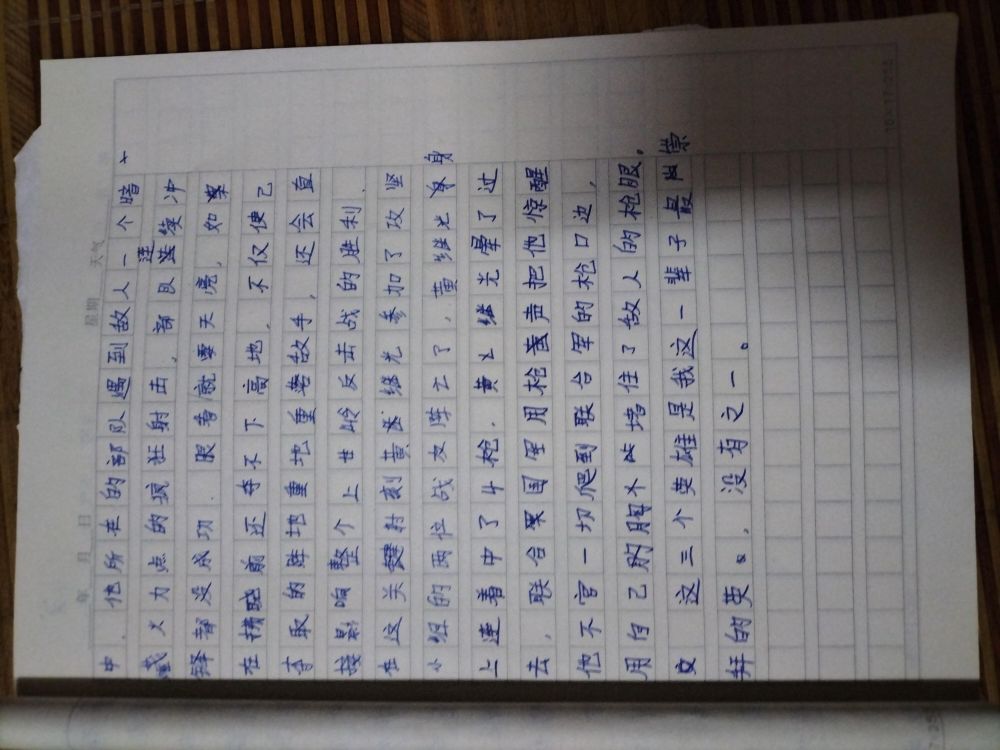 年 月 日 星期 天气
中，他所在的部队遇到敌人一个暗
火力点的疯狂射击，部队连续冲
锋都没成功．眼看就要天亮，如果
在拂晓前还夺不下高地，不仅使己
夺取的阵地重落敌手，还会直
接影响整个上甘岭反击战的胜利．
在这关键时刻黄继光参加了攻坚
小组的两位战友阵亡了，黄继光身
上连着中了4枪，黄继光晕了过
去，联合国军用枪声把他惊醒
他不害一切爬到联合军的枪口边，
用自己的胸堵住了敌人的枪眼。
这三个英雄是我这一辈子最崇
拜的英，没有之一。